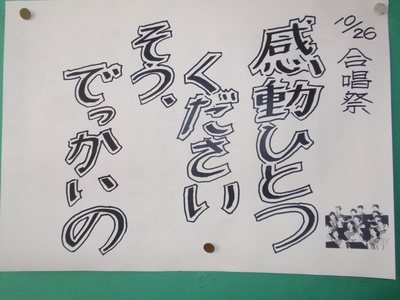 10/26 合唱祭
感動ひとつ
ください
そう、
でっかいの